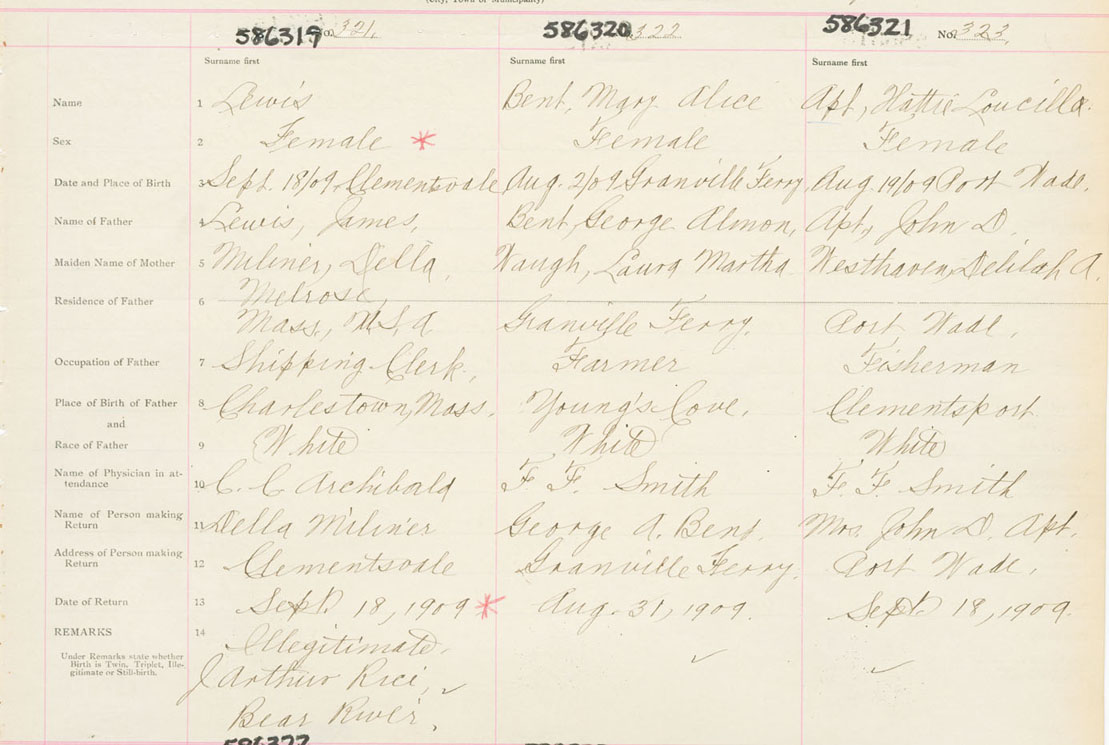 (City, Town or Municipality)
586319 No. 321. 586320 322 586321 No. 323.
Surname first Surname first Surname first
Name 1 Lewis Bent, Mary Alice Apt, Hattie Loucilla.
Sex 2 Female * Female Female
Date and Place of Birth 3 Sept. 18/09 Clementsvale Aug. 2/09 Granville Ferry Aug. 19/09 Port Wade.
Name of Father 4 Lewis, James, Bent, George Almon, Apt, John D.
Maiden Name of Mother 5 Miliner, Della, Waugh, Laura Martha Westhaven, Delilah A.
Residence of Father 6 Melrose,
Mass., U.S.A Granville Ferry. Port Wade.
Occupation of Father 7 Shipping Clerk, Farmer Fisherman
Place of Birth of Father 8 Charlestown, Mass. Young's Cove, Clementsport
and
Race of Father 9 White White White
Name of Physician in at-
tendance 10 C. C Archibald F. F. Smith F. F. Smith
Name of Person making
Return 11 Della Miliner George A. Bent. Mrs. John D. Apt.
Address of Person making
Return 12 Clementsvale Granville Ferry. Port Wade,
Date of Return 13 Sept 18, 1909 * Aug. 31, 1909. Sept. 18, 1909.
REMARKS 14 Illegitimate.
Under Remarks state whether
Birth is Twin, Triplet, Ille-
gitimate or Still-birth.
J Arthur Rice, ✓ ✓ ✓
Bear River,
586322